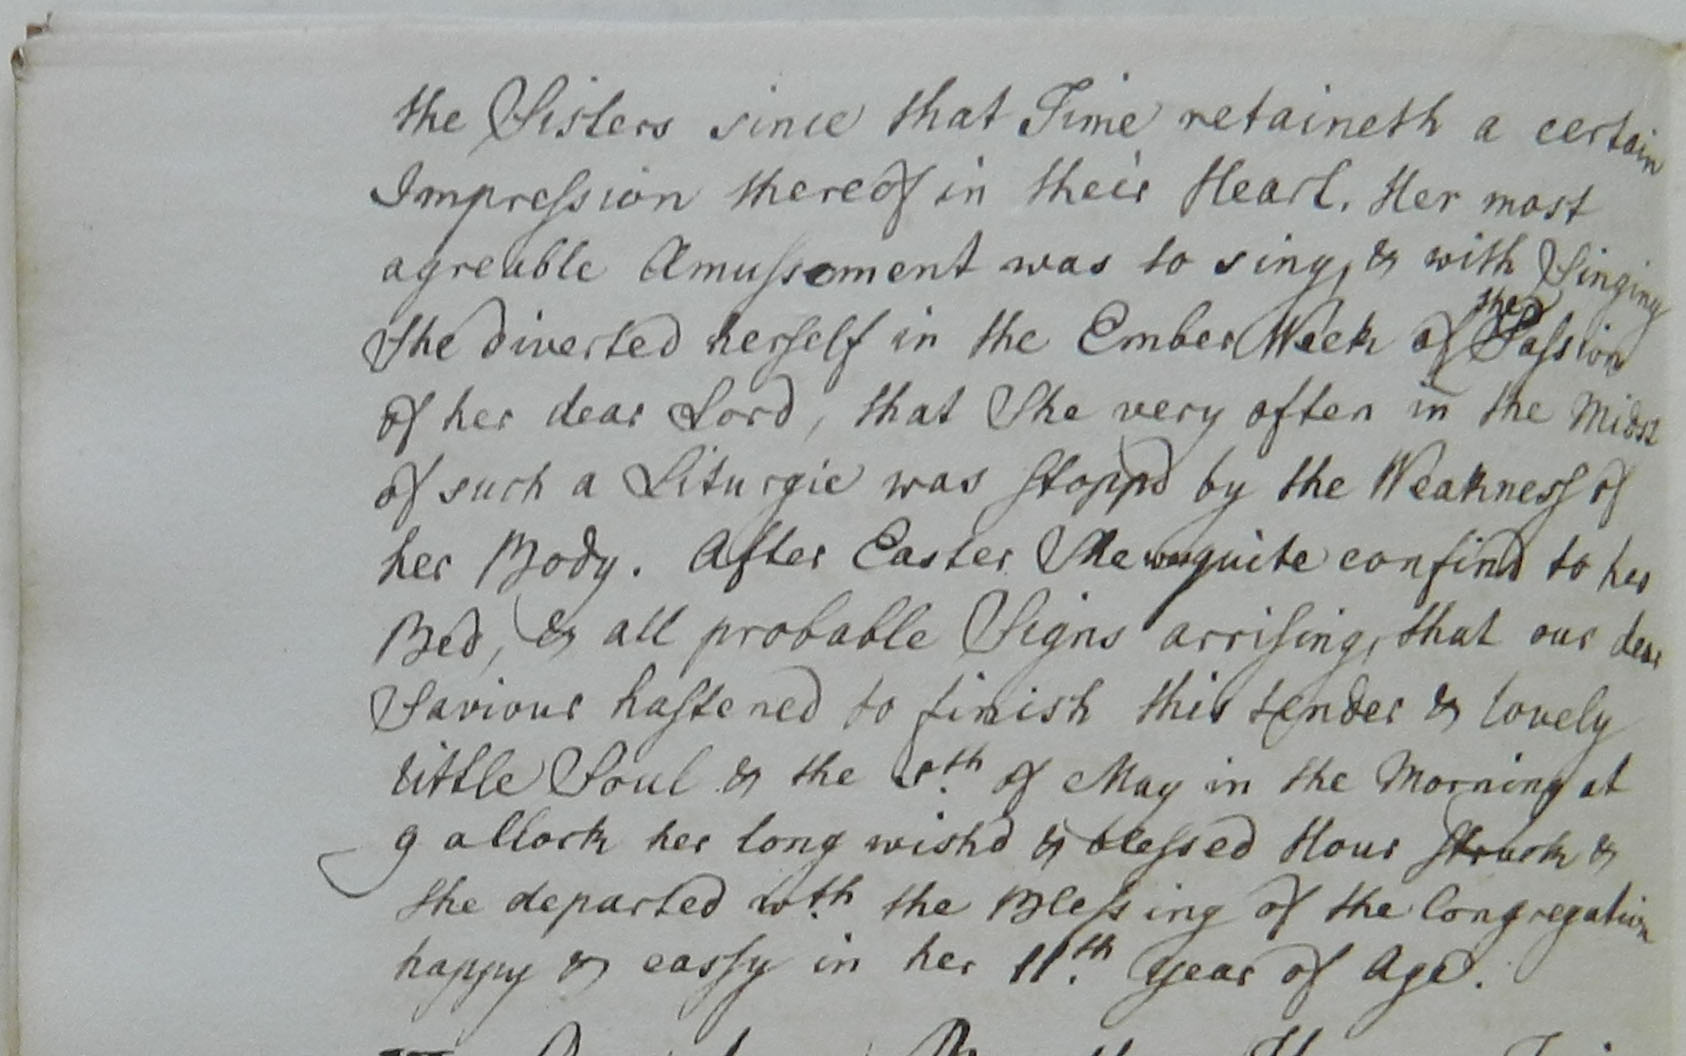 the Sisters since that Time retaineth a certain
Impression thereof in their Heart. Her most
agreable Amussement was to sing, & with Singing
She diverted herself in the Ember Week of the Passion
of her dear Lord, that She very often in the Midst
of such a Liturgie was stoppd by the Weakness of
her Body. After Easter She was quite confind to her
Bed, & all probable Signs arrising, that our dear
Saviour hastened to finish this tender & lovely
little Soul & the of May in the Morning at
9 a Clock her long wishd & blessed Hour struck &
she departed wth. the Blessing of the Congregation
happy & eassy in her 11th. Year of Age.